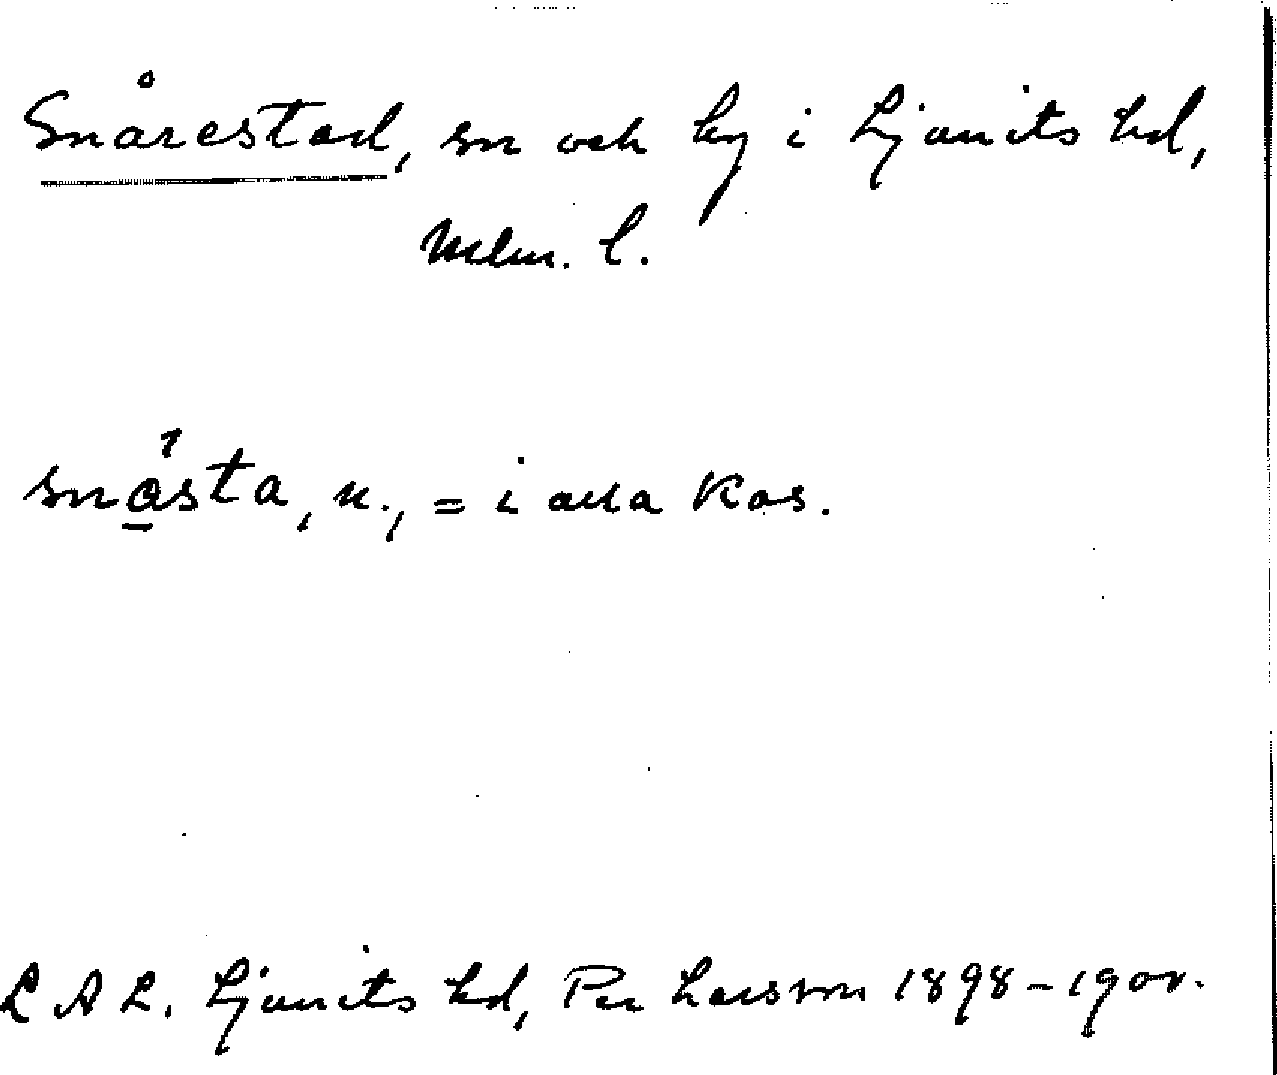 Snårestad, sn och by i Ljunits hd,
Mlm. l.
snåsta, n., = i alla kas.
L A L. Ljunits hd, Per Larsson 1898-1900.